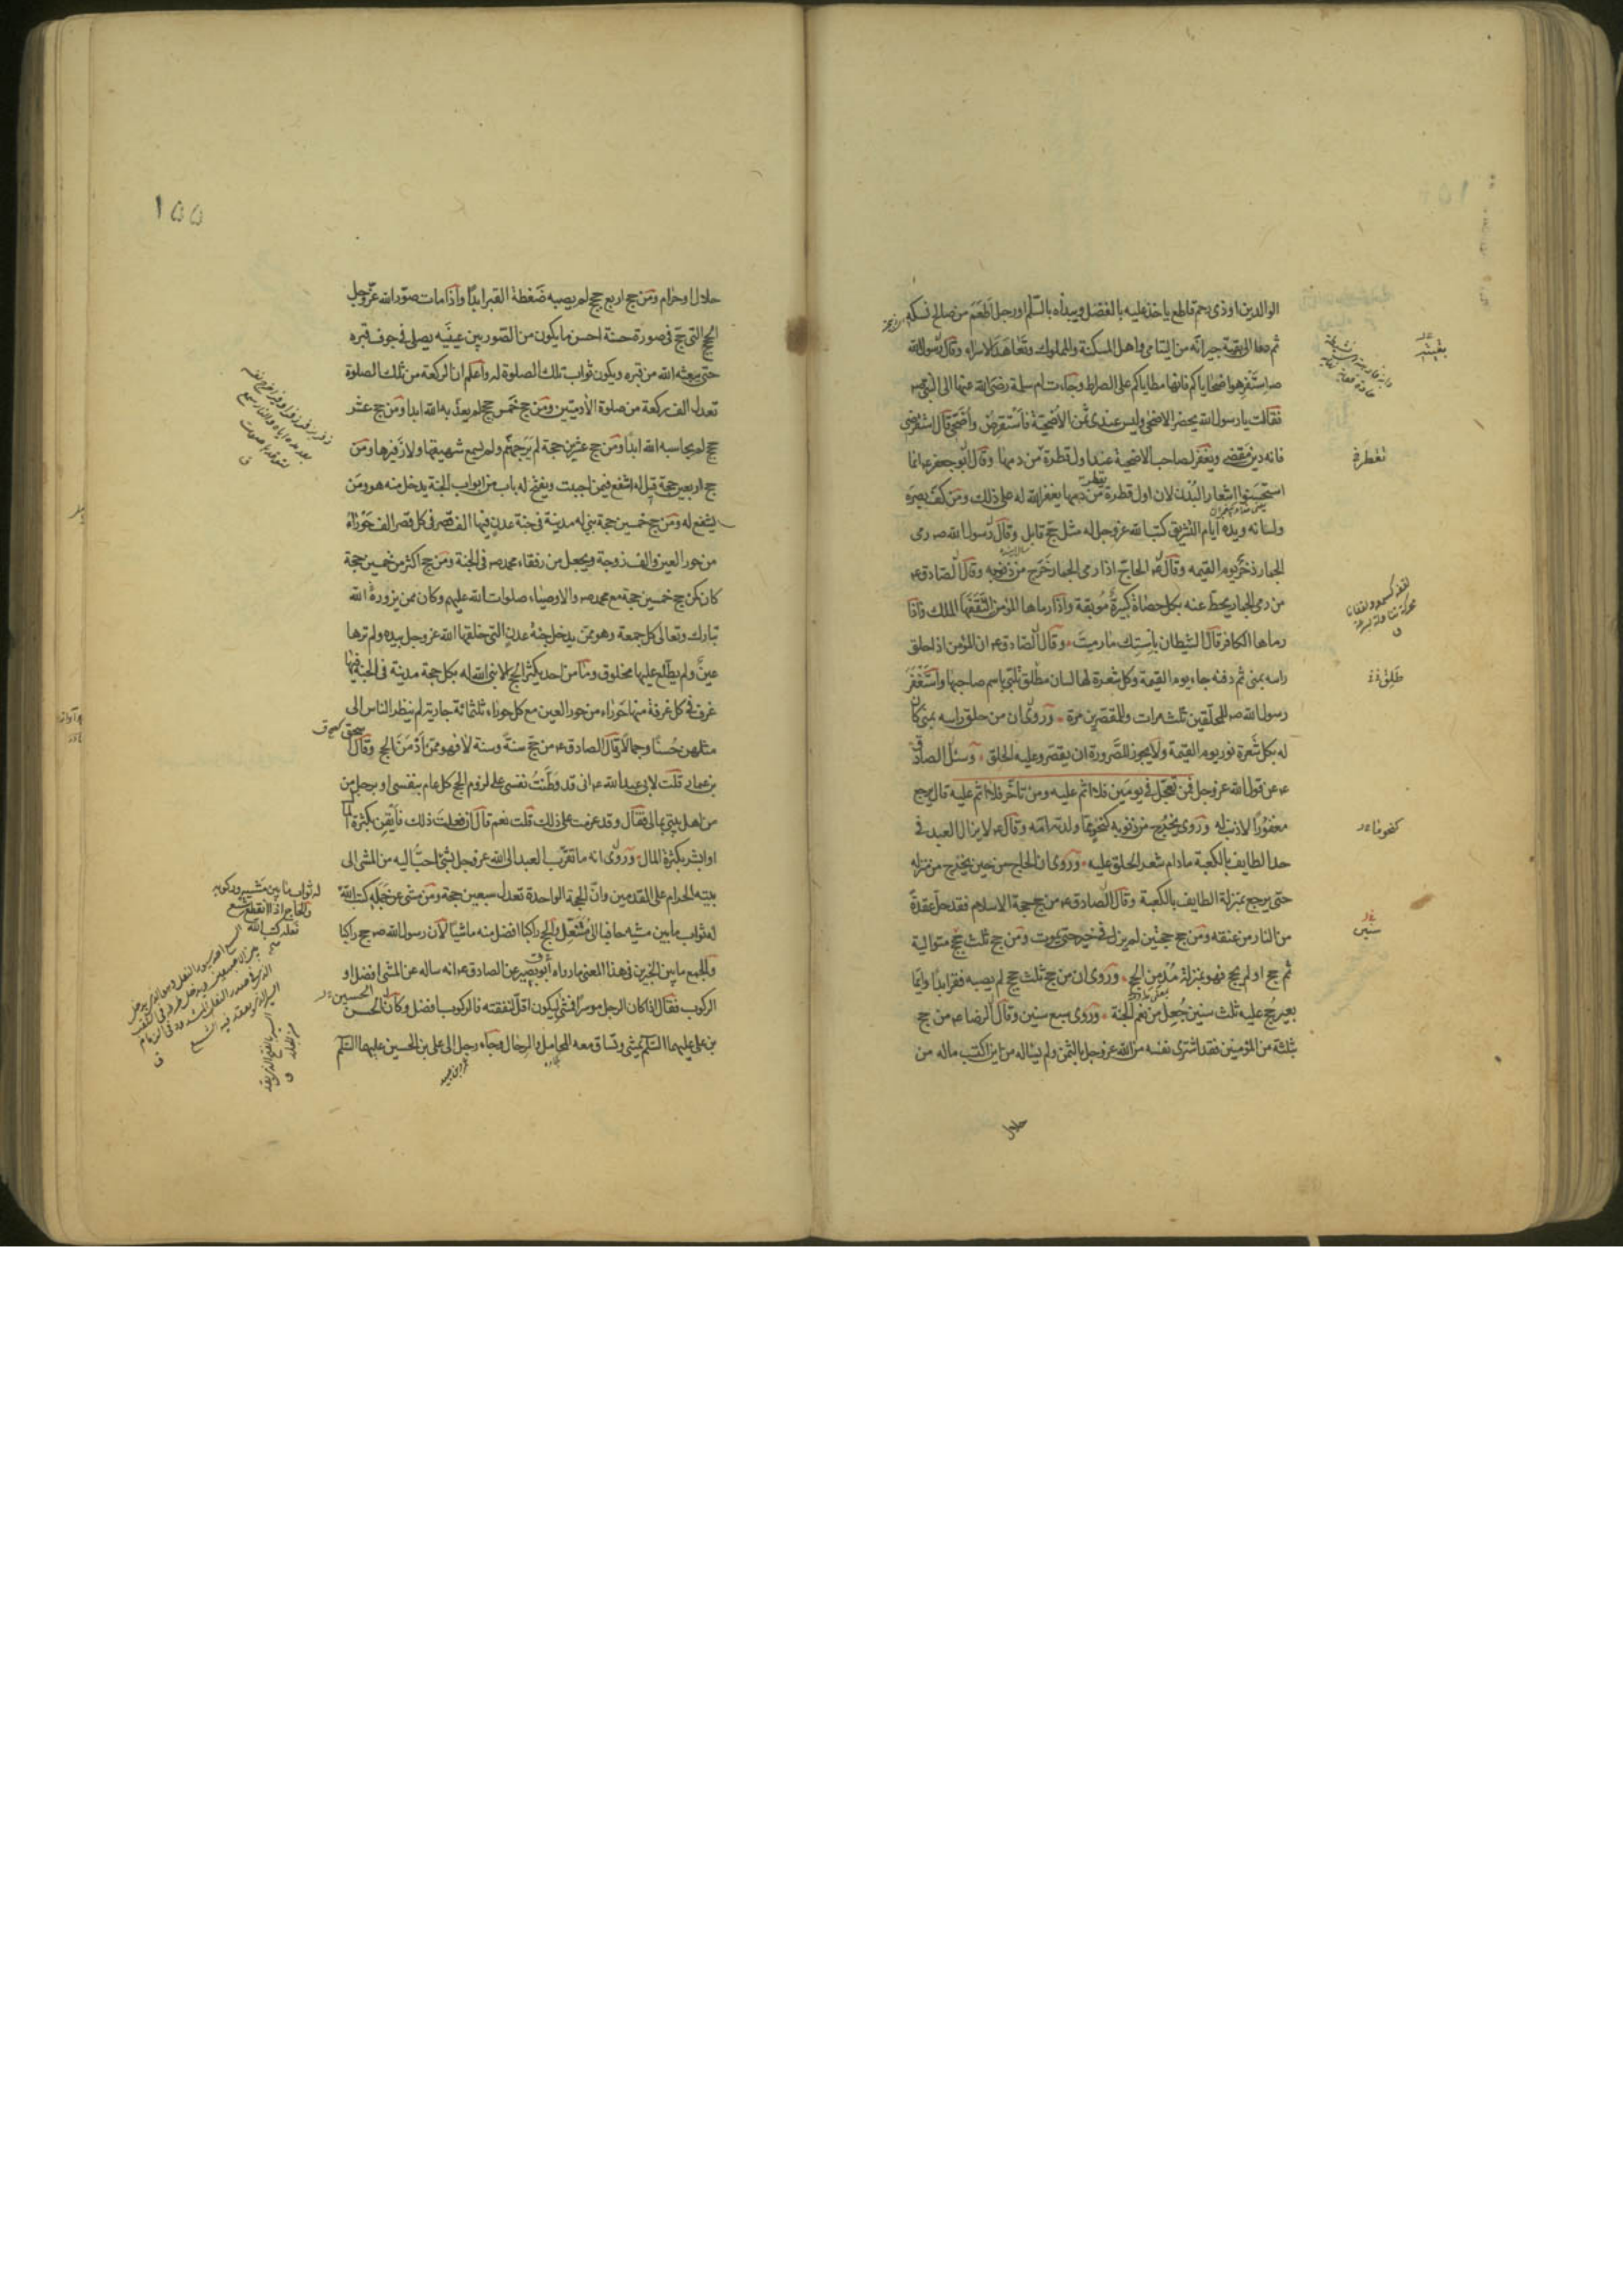 الوالدين او ذى رحم قاطع ياخذ عليه بالفضل ويبدأه بالسّلم اورجل اطعم من صالح نسكه
ثم دعا الى بقية جيرانه من اليتامى واهل المسكنة والمملوك وتعاهد الاسراء وقال رسول الله
ص استفرهوا ضحاياكم فانها مطاياكم على الصراط وجاءت ام سلمة رضى الله عنها الى النبى ص
فقالت يا رسول الله يحضر الاضحى وليس عندى ثمن الاضحية فاستقرض واضحى قال استقرضى
فانه دين مقضى ويغفر لصاحب الاضحية عند اول قطرة من دمها وقال ابو جعفر ع انما
استحسنوا اشعار البدن لان اول قطرة من دمها يغفر الله له على ذلك ومن كف بصره
ولسانه ويده ايام التشريق كتب الله عز وجل له مثل حج قابل وقال رسول الله ص رمى
الجمار ذخر يوم القيمه وقال ع الحاج اذا رمى الجمار خرج من ذنوبه وقال الصادق ع
من رمى الجمار يحط عنه بكل حصاة كبيرة موبقة واذا رماها المؤمن التقفها الملك واذا
رماها الكافر قال الشيطان باستك ما رميت وقال الصادق ع ان المؤمن اذا حلق
راسه بمنى ثم دفنه جاء يوم القيمة وكل شعرة لها لسان مطلق تلبى باسم صاحبها واستغفر
رسول الله ص للمحلقين ثلث مرات وللمقصرين مرة وروى ان من حلق راسه بمنى كان
له بكل شعرة نور يوم القيمة ولا يجوز للصرورة ان يقصر وعليه الحلق وسئل الصادق
ع عن قول الله عز وجل فمن تعجل فى يومين فلا اثم عليه ومن تاخر فلا اثم عليه قال يرجع
مغفورا لا ذنب له وروى يخرج من ذنوبه كنحو مما ولدته امه وقال ع لا يزال العبد فى
حد الطايف بالكعبة مادام شعر الحلق عليه وروى ان الحاج من حين يخرج من منزله
حتى يرجع بمنزلة الطايف بالكعبة وقال الصادق ع من حج حجة الاسلام فقد حل عقدة
من النار من عنقه ومن حج حجتين لم يزل فى خير حتى يموت ومن حج ثلث حجج متوالية
ثم حج او لم يحج فهو بمنزلة مدمن الحج وروى ان من حج ثلث حجج لم يصبه فقر ابدا وايما
بعير حج عليه ثلث سنين جعل من نعم الجنة وروى سبع سنين وقال الرضا ع من حج
بثلثة من المؤمنين فقد اشترى نفسه من الله عز وجل بالثمن ولم يسئاله من اين اكتسب ماله من
حلال
تقطرة
طلق ذ
كنحو ما
سنين
١٥٥
حلال او حرام ومن حج اربع حجج لم يصبه ضغطة القبر ابدا واذا مات صور الله عز وجل
الحج التى حج فى صورة حسنة احسن ما يكون من الصور بين عينيه يصلى فى جوف قبره
حتى يبعثه الله من قبره ويكون ثواب تلك الصلوة له واعلم ان الركعة من تلك الصلوة
تعدل الف ركعة من صلوة الآدميين ومن حج خمس حجج لم يعذبه الله ابدا ومن حج عشر
حجج لم يحاسبه الله ابدا ومن حج عشرين حجة لم ير جهنم ولم يسمع شهيقها ولا زفيرها ومن
حج اربعين حجة قيل له اشفع فيمن احببت ويفتح له باب من ابواب الجنة يدخل منه هو ومن
يشفع له ومن حج خمسين حجة بنى له مدينة فى جنة عدن فيها الف قصر فى كل قصر الف حوراء
من حور العين والف زوجة ويجعل من رفقاء محمد ص فى الجنة ومن حج اكثر من خمسين حجة
كان كمن حج خمسين حجة مع محمد ص والاوصياء صلوات الله عليهم وكان ممن يزوره الله
تبارك وتعالى كل جمعة وهو ممن يدخل جنة عدن التى خلقها الله عز وجل بيده ولم ترها
عين ولم يطلع عليها مخلوق وما من احد يكثر الحج الا بنى الله له بكل حجة مدينة فى الجنة فيها
غرف فى كل غرفة منها حوراء من حور العين مع كل حوراء ثلثمائة جارية لم ينظر الناس الى
مثلهن حسنا وجمالا وقال الصادق ع من حج سنة وسنة لا فهو ممن ادمن الحج وقال اسحق
بن عمار قلت لابى عبد الله ع انى قد وطنت نفسى على لزوم الحج كل عام بنفسى او برجل من
من اهل بيتى بمالى فقال وقد عزمت على ذلك قلت نعم قال ان فعلت ذلك فايقن بكثرة المال
او ابشر بكثرة المال وروى انه ما تقرب العبد الى الله عز وجل بشئ احب اليه من المشى الى
بيته الحرام على القدمين وان الحجة الواحدة تعدل سبعين حجة ومن مشى عن جمله كتب الله
له ثواب ما بين مشيه حافيا الى متنعل والحج راكبا افضل منه ماشيا لان رسول الله ص حج راكبا
والجمع ما بين الخبرين فى هذا المعنى ما رواه ابو بصير عن الصادق ع انه ساله عن المشى افضل او
الركوب فقال اذا كان الرجل موسرا فمشى ليكون اقل لنفقته فالركوب افضل وكان الحسن
بن على عليهما السلم يمشى وتساق معه المحامل والرحال وجاء رجل الى على بن الحسين عليهما السلم
له ثواب ما بين مشيه وركوبه
والحاج اذا انقطع شسع
نعله كتب الله
الحسين